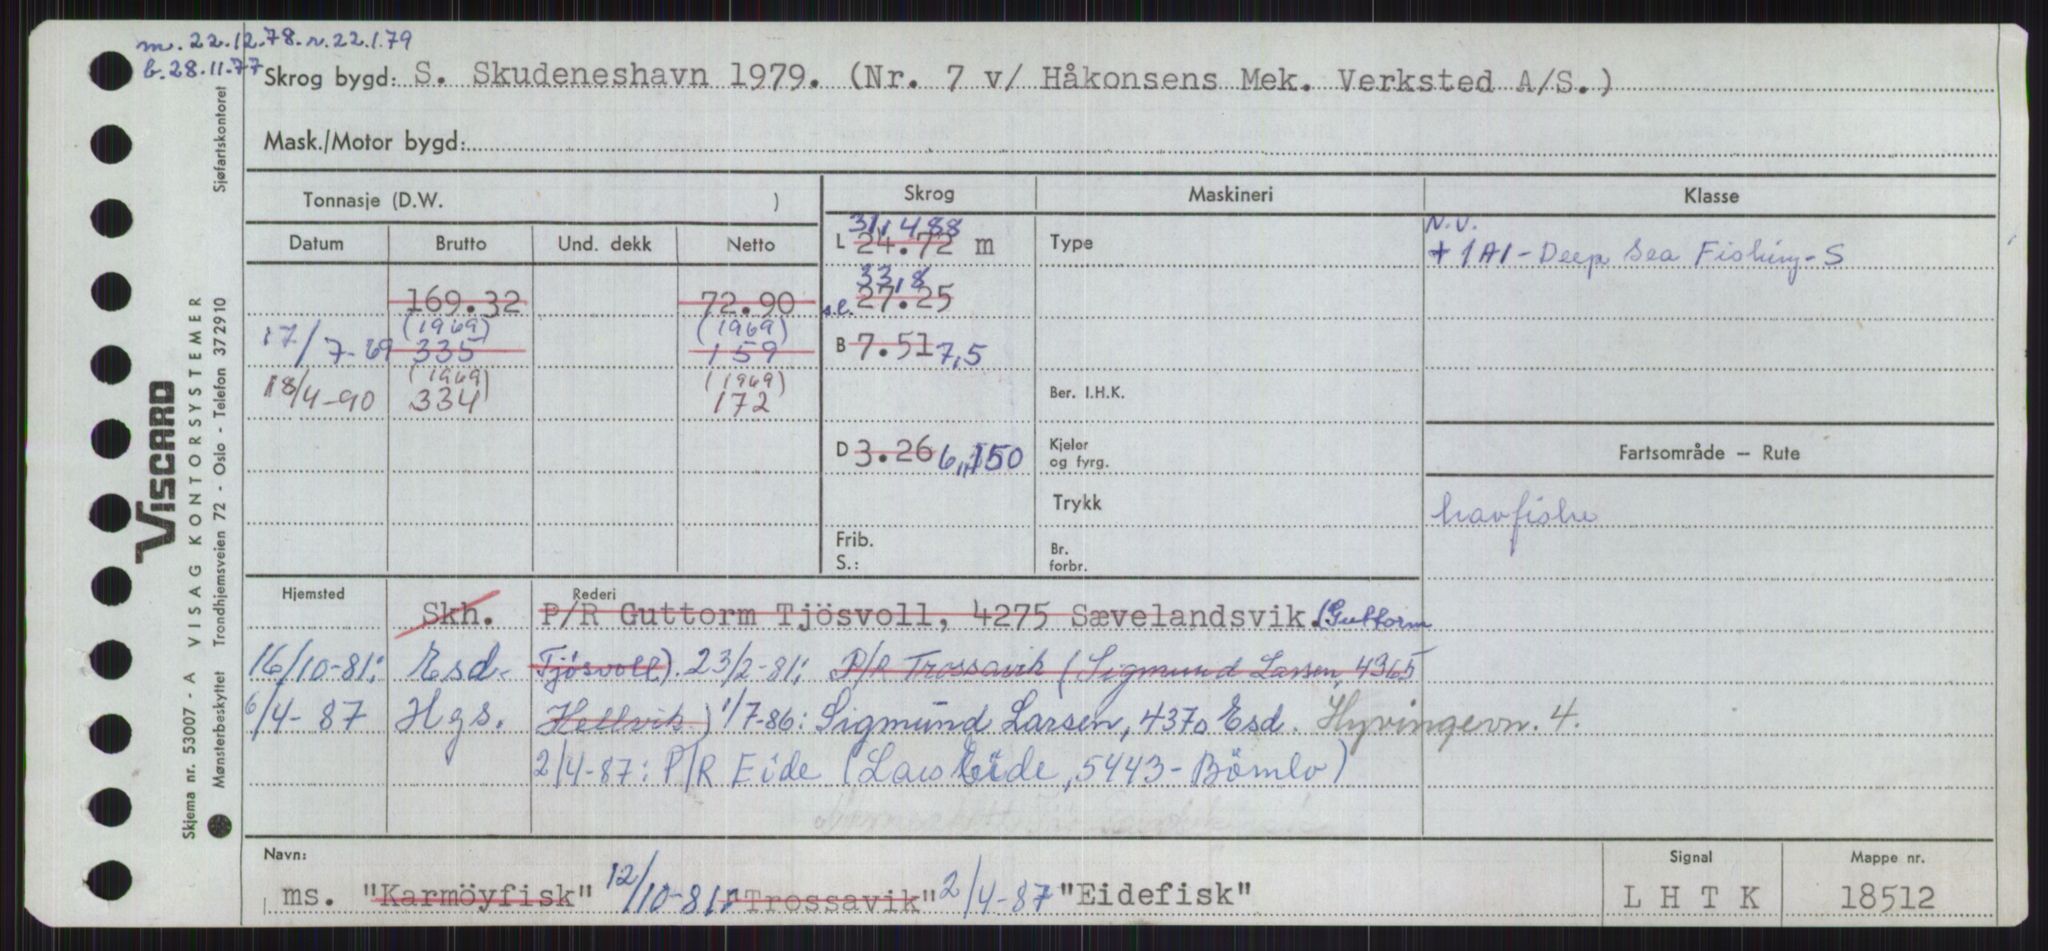 m. 22.12.78. r. 22.1.79
b. 28.11.77
Skrog bygd: S. Skudeneshavn 1979. (Nr. 7 v/ Håkonsens Mek. Verksted A/S.)
Mask./Motor bygd:
Sjøfartskontoret
Tonnasje (D.W. )
Skrog
Maskineri
Klasse
Datum Brutto Und. dekk Netto
31,488
L 24.72 m
Type
N.V.
+ 1A1 - Deep Sea Fishing - S
169.32 72.90
33,8
s.l. 27.25
(1969) (1969)
17/7-69 335 159
B 7.51 7,5
(1969) (1969)
18/4-90 334 172
Ber. I.H.K.
D 3.26 6,150
Kjeler
og fyrg.
Fartsområde — Rute
Trykk
havfiske
Frib.
S.:
Br.
forbr.
Hjemsted
Rederi
Skh. P/R Guttorm Tjösvoll, 4275 Sævelandsvik. (Guttorm
16/10-81: Esd. Tjösvoll). 23/2-81: P/R Trossavik (Sigmund Larsen, 4365
6/4-87 Hgs. Hellvik) 1/7-86: Sigmund Larsen, 4370 Esd. Hyvingevn. 4.
2/4-87: P/R Eide (Lars Eide, 5443 - Bömlo)
Navn:
ms. "Karmöyfisk" 12/10-81: "Trossavik" 2/4-87 "Eidefisk"
Signal
L H T K
Mappe nr.
18512
VISCARD
Skjema nr. 53007 - A VISAG KONTORSYSTEMER
Mønsterbeskyttet Trondhjemsveien 72 - Oslo - Telefon 372910